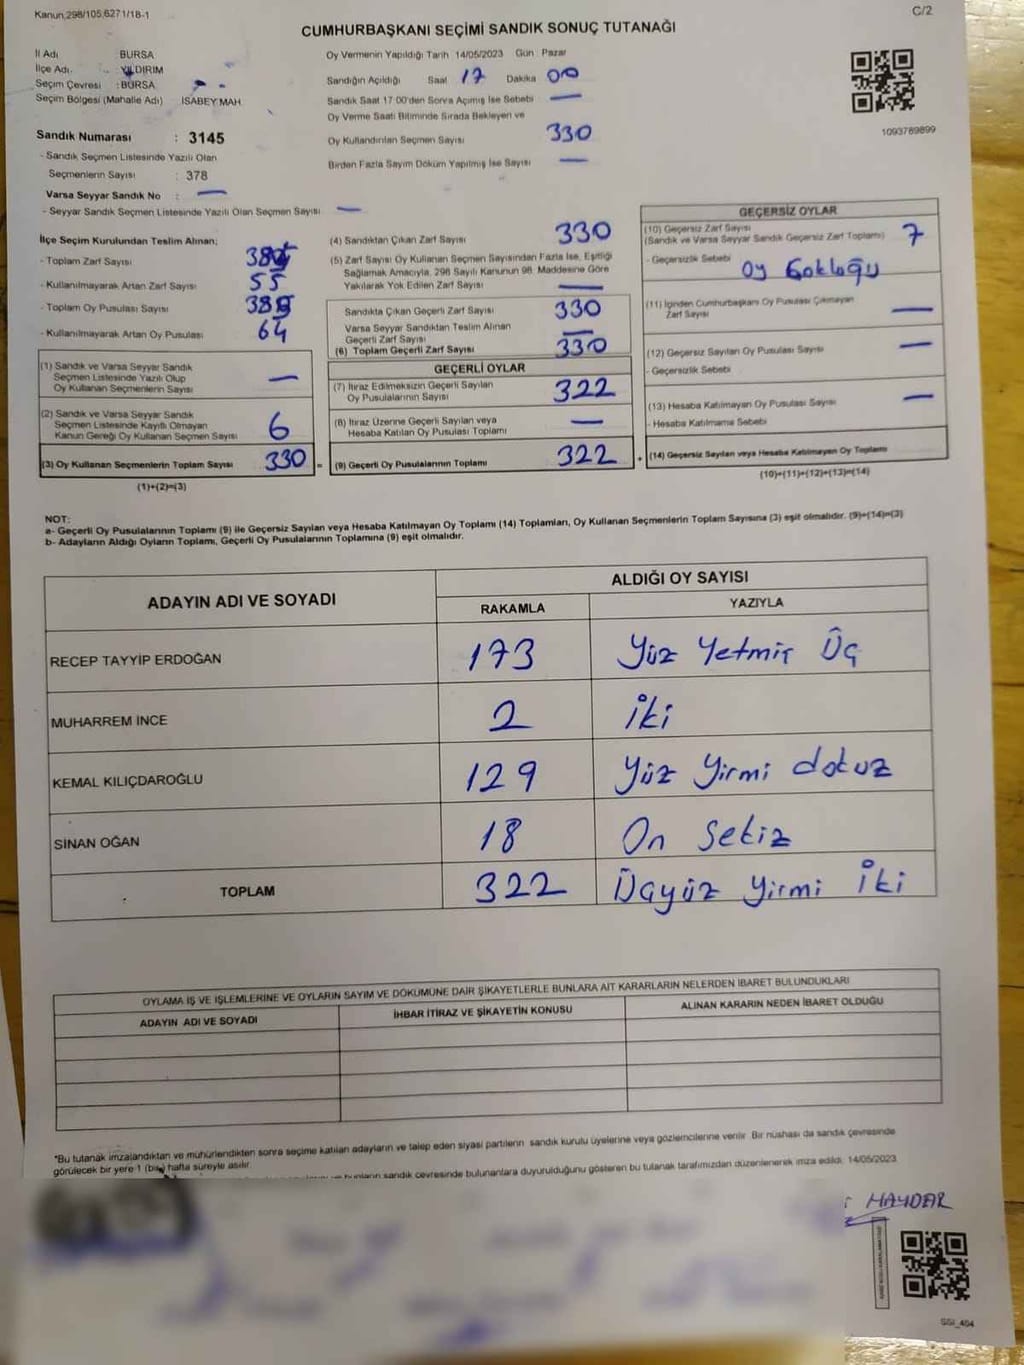 Kanun,298/105,6271/18-1
C/2
CUMHURBAŞKANI SEÇİMİ SANDIK SONUÇ TUTANAĞI
İl Adı BURSA
İlçe Adı YILDIRIM
Seçim Çevresi :BURSA
Seçim Bölgesi (Mahalle Adı) İSABEY MAH.
Sandık Numarası : 3145
- Sandık Seçmen Listesinde Yazılı Olan
Seçmenlerin Sayısı : 378
Varsa Seyyar Sandık No : —
- Seyyar Sandık Seçmen Listesinde Yazılı Olan Seçmen Sayısı —
Oy Vermenin Yapıldığı Tarih 14/05/2023 Gün Pazar
Sandığın Açıldığı Saat 17 Dakika 00
Sandık Saat 17:00'den Sonra Açımış İse Sebebi —
Oy Verme Saati Bitiminde Sırada Bekleyen ve
Oy Kullandırılan Seçmen Sayısı 330
Birden Fazla Sayım Döküm Yapılmış İse Sayısı —
1093789899
İlçe Seçim Kurulundan Teslim Alınan;
- Toplam Zarf Sayısı
- Kullanılmayarak Artan Zarf Sayısı 55
- Toplam Oy Pusulası Sayısı
- Kullanılmayarak Artan Oy Pusulası 64
(1) Sandık ve Varsa Seyyar Sandık
Seçmen Listesinde Yazılı Olup
Oy Kullanan Seçmenlerin Sayısı —
(2) Sandık ve Varsa Seyyar Sandık
Seçmen Listesinde Kayıtlı Olmayan
Kanun Gereği Oy Kullanan Seçmen Sayısı 6
(3) Oy Kullanan Seçmenlerin Toplam Sayısı 330 =
(1)+(2)=(3)
(4) Sandıktan Çıkan Zarf Sayısı 330
(5) Zarf Sayısı Oy Kullanan Seçmen Sayısından Fazla İse, Eşitliği
Sağlamak Amacıyla, 298 Sayılı Kanunun 98. Maddesine Göre
Yakılarak Yok Edilen Zarf Sayısı —
Sandıkta Çıkan Geçerli Zarf Sayısı 330
Varsa Seyyar Sandıktan Teslim Alınan
Geçerli Zarf Sayısı —
(6) Toplam Geçerli Zarf Sayısı 330
GEÇERLİ OYLAR
(7) İtiraz Edilmeksizin Geçerli Sayılan
Oy Pusulalarının Sayısı 322
(8) İtiraz Üzerine Geçerli Sayılan veya
Hesaba Katılan Oy Pusulası Toplamı —
(9) Geçerli Oy Pusulalarının Toplamı 322 +
GEÇERSİZ OYLAR
(10) Geçersiz Zarf Sayısı
(Sandık ve Varsa Seyyar Sandık Geçersiz Zarf Toplamı) 7
- Geçersizlik Sebebi Oy Çokluğu
(11) İçinden Cumhurbaşkanı Oy Pusulası Çıkmayan
Zarf Sayısı —
(12) Geçersiz Sayılan Oy Pusulası Sayısı —
- Geçersizlik Sebebi
(13) Hesaba Katılmayan Oy Pusulası Sayısı —
- Hesaba Katılmama Sebebi
(14) Geçersiz Sayılan veya Hesaba Katılmayan Oy Toplamı
(10)+(11)+(12)+(13)=(14)
NOT:
a- Geçerli Oy Pusulalarının Toplamı (9) ile Geçersiz Sayılan veya Hesaba Katılmayan Oy Toplamı (14) Toplamları, Oy Kullanan Seçmenlerin Toplam Sayısına (3) eşit olmalıdır. (9)+(14)=(3)
b- Adayların Aldığı Oyların Toplamı, Geçerli Oy Pusulalarının Toplamına (9) eşit olmalıdır.
ADAYIN ADI VE SOYADI
ALDIĞI OY SAYISI
RAKAMLA YAZIYLA
RECEP TAYYİP ERDOĞAN 173 Yüz Yetmiş Üç
MUHARREM İNCE 2 İki
KEMAL KILIÇDAROĞLU 129 Yüz Yirmi dokuz
SİNAN OĞAN 18 On Sekiz
TOPLAM 322 Üçyüz Yirmi İki
OYLAMA İŞ VE İŞLEMLERİNE VE OYLARIN SAYIM VE DÖKÜMÜNE DAİR ŞİKAYETLERLE BUNLARA AİT KARARLARIN NELERDEN İBARET BULUNDUKLARI
ADAYIN ADI VE SOYADI İHBAR İTİRAZ VE ŞİKAYETİN KONUSU ALINAN KARARIN NEDEN İBARET OLDUĞU
*Bu tutanak imzalandıktan ve mühürlendikten sonra seçime katılan adayların ve talep eden siyasi partilerin sandık kurulu üyelerine veya gözlemcilerine verilir. Bir nüshası da sandık çevresinde
görülecek bir yere 1 (bir) hafta süreyle asılır.
bunların sandık çevresinde bulunanlara duyurulduğunu gösteren bu tutanak tarafımızdan düzenlenerek imza edildi. 14/05/2023
HAYDAR
SSI_404